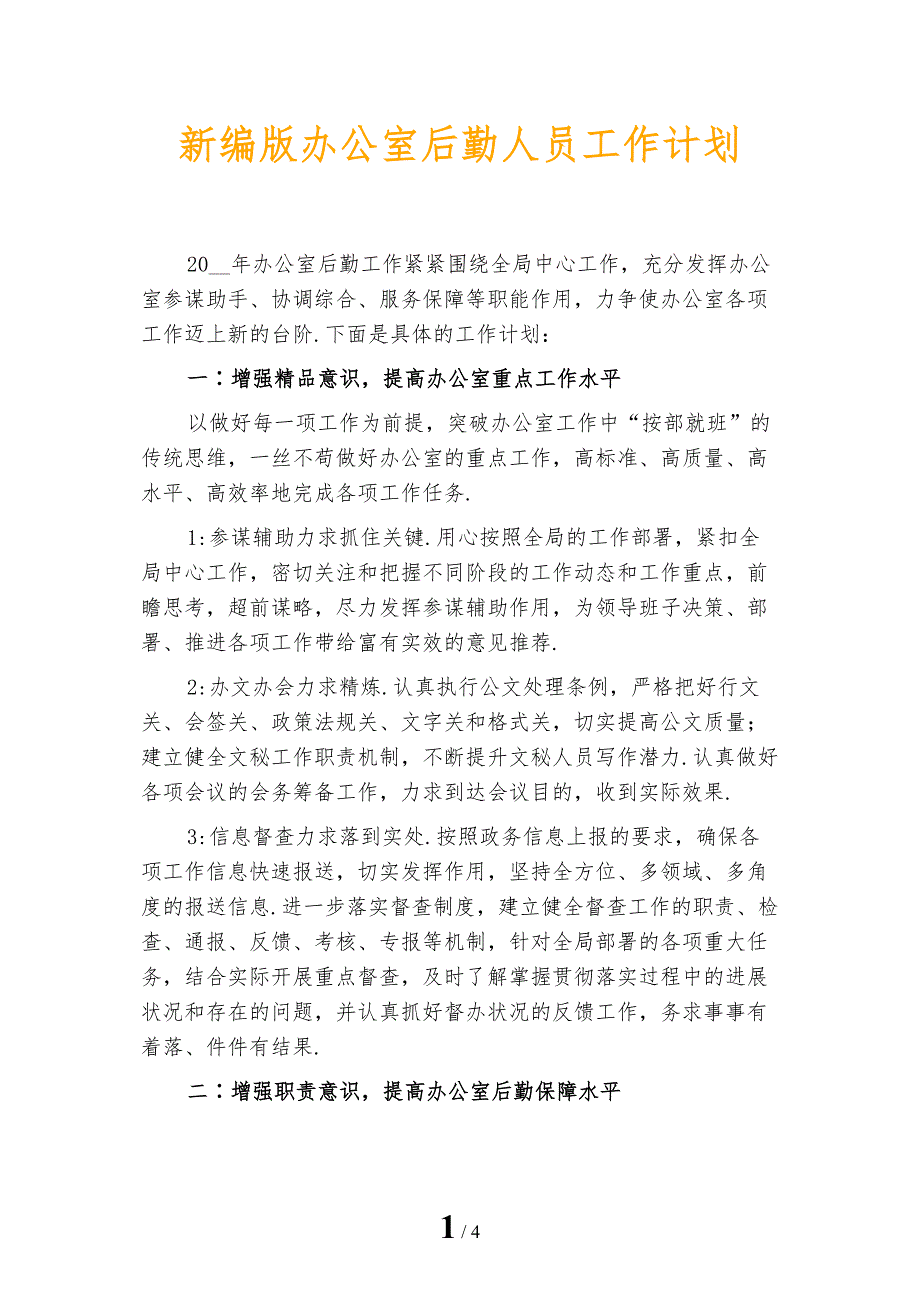 新编版办公室后勤人员工作计划
20__年办公室后勤工作紧紧围绕全局中心工作，充分发挥办公
室参谋助手、协调综合、服务保障等职能作用，力争使办公室各项
工作迈上新的台阶.下面是具体的工作计划：
一：增强精品意识，提高办公室重点工作水平
以做好每一项工作为前提，突破办公室工作中“按部就班”的
传统思维，一丝不苟做好办公室的重点工作，高标准、高质量、高
水平、高效率地完成各项工作任务.
1:参谋辅助力求抓住关键.用心按照全局的工作部署，紧扣全
局中心工作，密切关注和把握不同阶段的工作动态和工作重点，前
瞻思考，超前谋略，尽力发挥参谋辅助作用，为领导班子决策、部
署、推进各项工作带给富有实效的意见推荐.
2:办文办会力求精炼.认真执行公文处理条例，严格把好行文
关、会签关、政策法规关、文字关和格式关，切实提高公文质量；
建立健全文秘工作职责机制，不断提升文秘人员写作潜力.认真做好
各项会议的会务筹备工作，力求到达会议目的，收到实际效果.
3:信息督查力求落到实处.按照政务信息上报的要求，确保各
项工作信息快速报送，切实发挥作用，坚持全方位、多领域、多角
度的报送信息.进一步落实督查制度，建立健全督查工作的职责、检
查、通报、反馈、考核、专报等机制，针对全局部署的各项重大任
务，结合实际开展重点督查，及时了解掌握贯彻落实过程中的进展
状况和存在的问题，并认真抓好督办状况的反馈工作，务求事事有
着落、件件有结果.
二：增强职责意识，提高办公室后勤保障水平
1 / 4